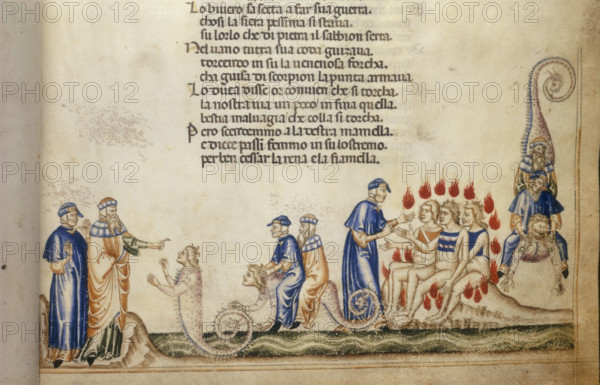 Lo biuero sa setta a far sua guerra.
chosi la fiera pessima si staua.
su lorlo che di pietra il sabbion serra.
Nel uano tutta sua coda guizaua.
torcendo in su la uenenosa forcha.
cha guisa di scorpion la punta armaua
Lo duca disse or conuien che si torcha.
la nostra uia un poco in fin a quella.
bestia maluagia che colla si torcha.
Pero scendemmo a la destra mamella.
e diece passi femmo in su lostremo.
per ben cessar la rena e la fiamella.